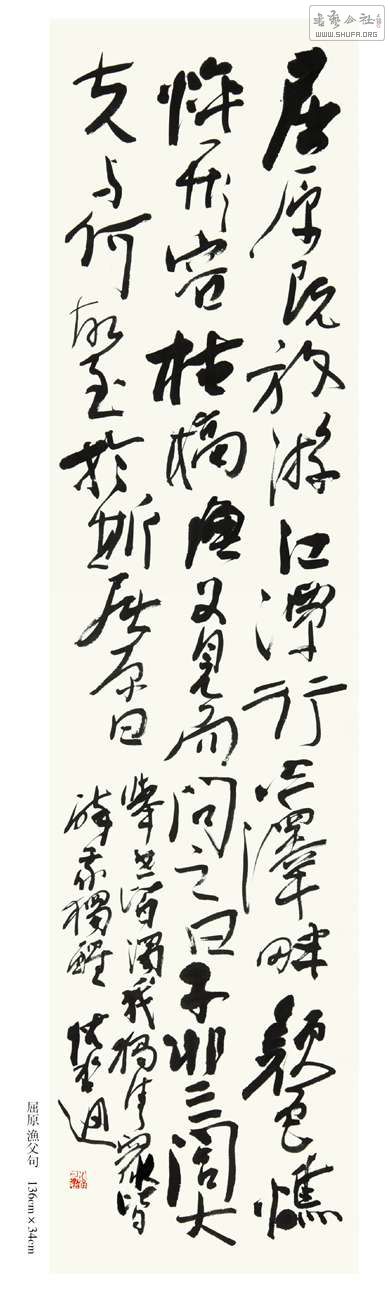 書藝公社
WWW.SHUFA.ORG
屈原既放游江潭行吟澤畔顏色憔
悴形容枯槁漁父見而問之曰子非三閭大
夫与何故至於斯屈原曰
舉世皆濁我獨清眾皆
醉我獨醒
屈原 漁父句 136cm×34cm